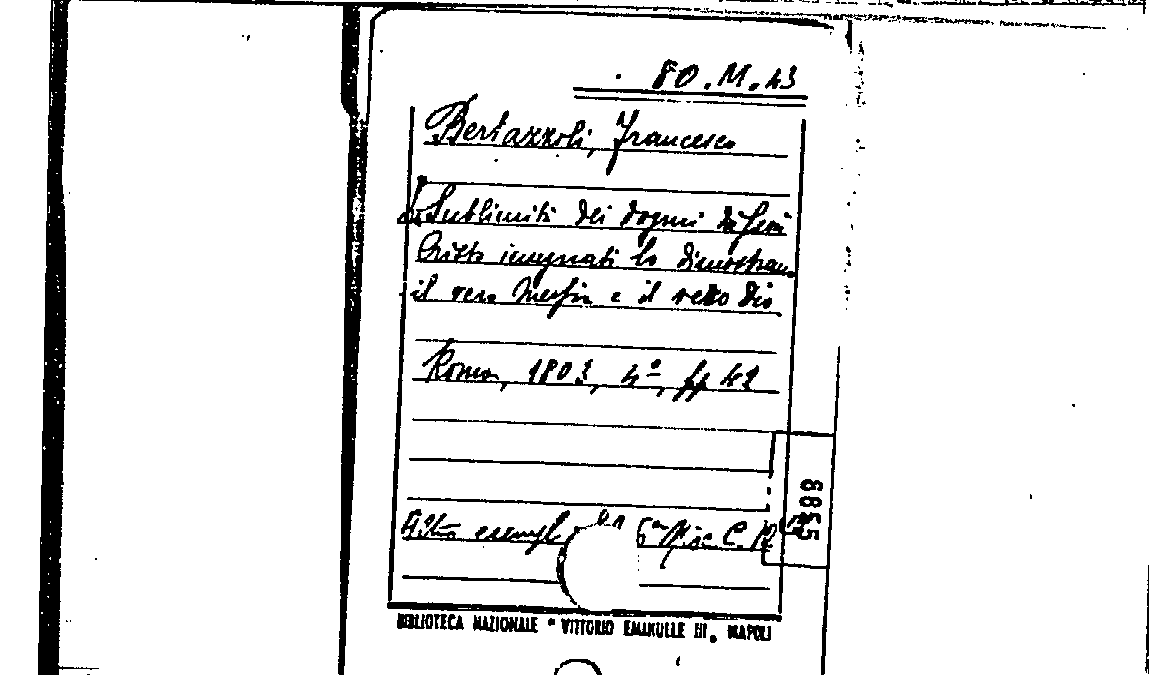 80.M.43
Bertazzoli, Francesco
La Sublimità dei dogmi da Gesù
Cristo insegnati lo dimostrano
il vero Messia e il vero Dio
Roma, 1803, 4º, pp 42
Altro esempl 6ª Misc C.
8855
BIBLIOTECA NAZIONALE "VITTORIO EMANUELE III, NAPOLI